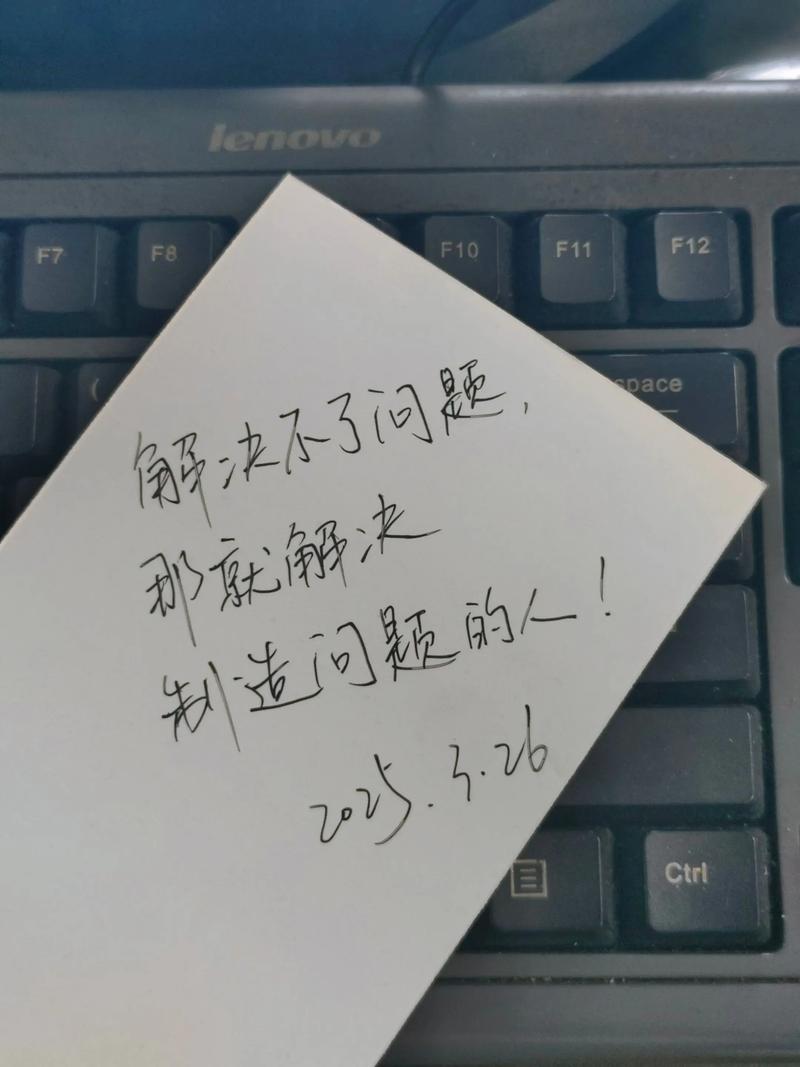 lenovo
F7 F8 F10 F11 F12
(
space
解决不了问题,
那就解决
制造问题的人!
2025.3.26
Ctrl